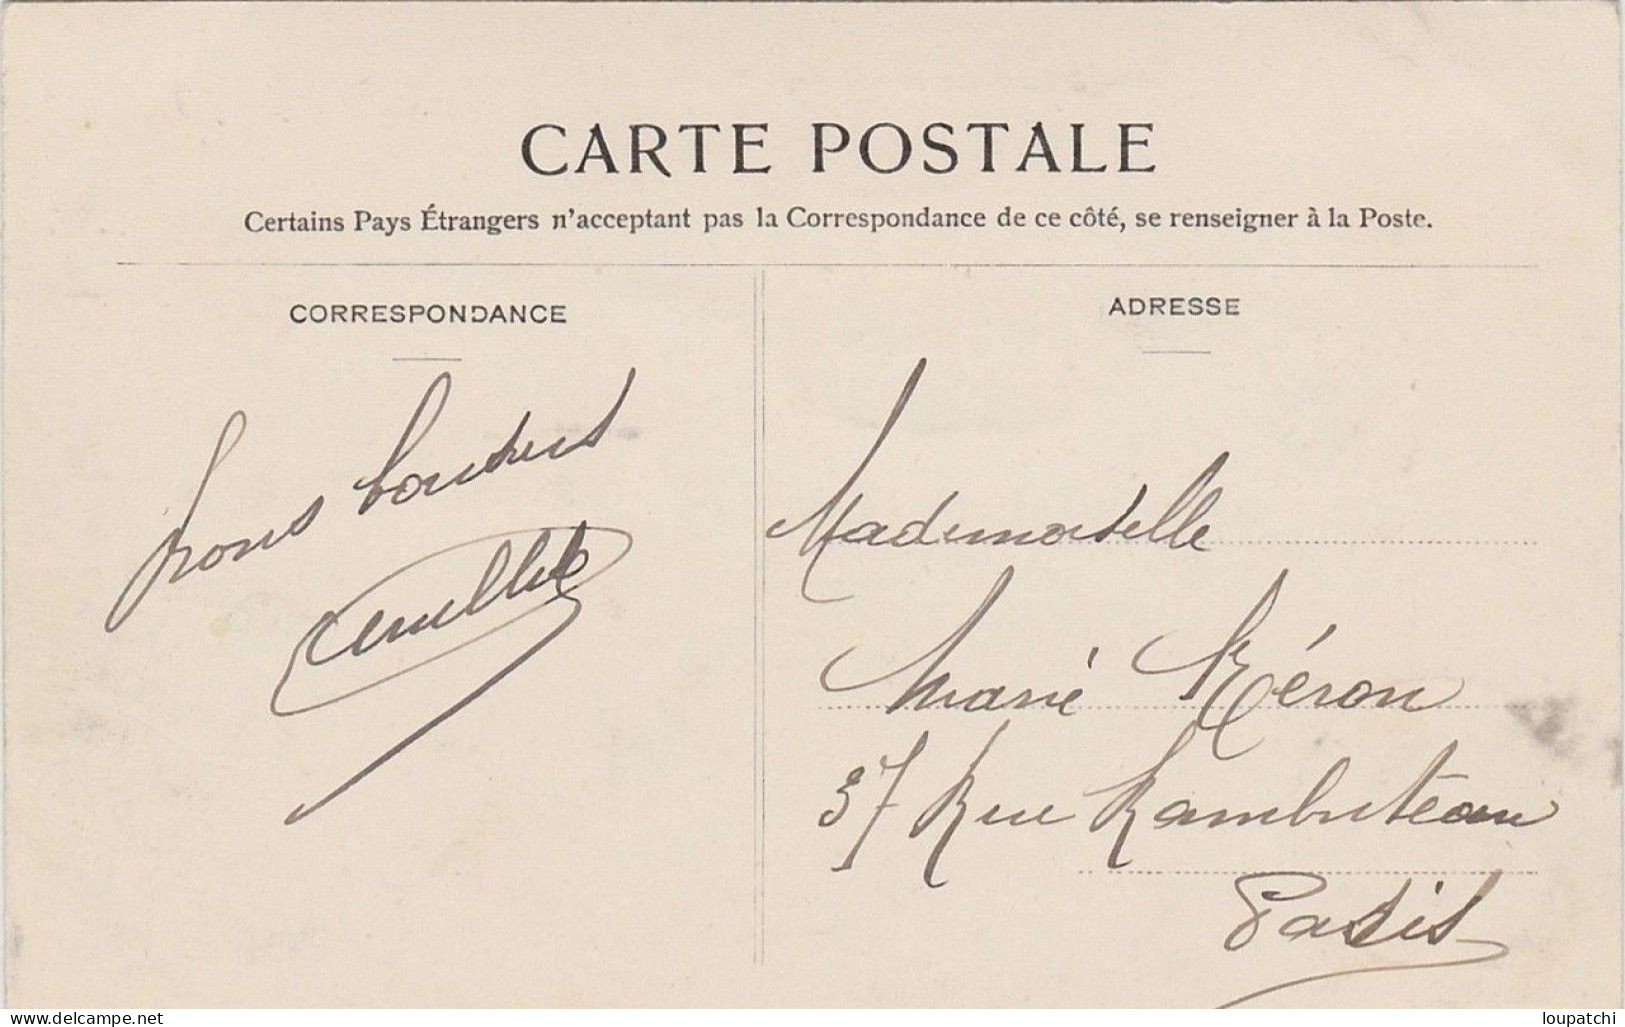 CARTE POSTALE
Certains Pays Étrangers n'acceptant pas la Correspondance de ce côté, se renseigner à la Poste.
CORRESPONDANCE
ADRESSE
bons
Mademoiselle
Marie Réron
37 Rue Rambuteau
Paris
www.delcampe.net
loupatchi